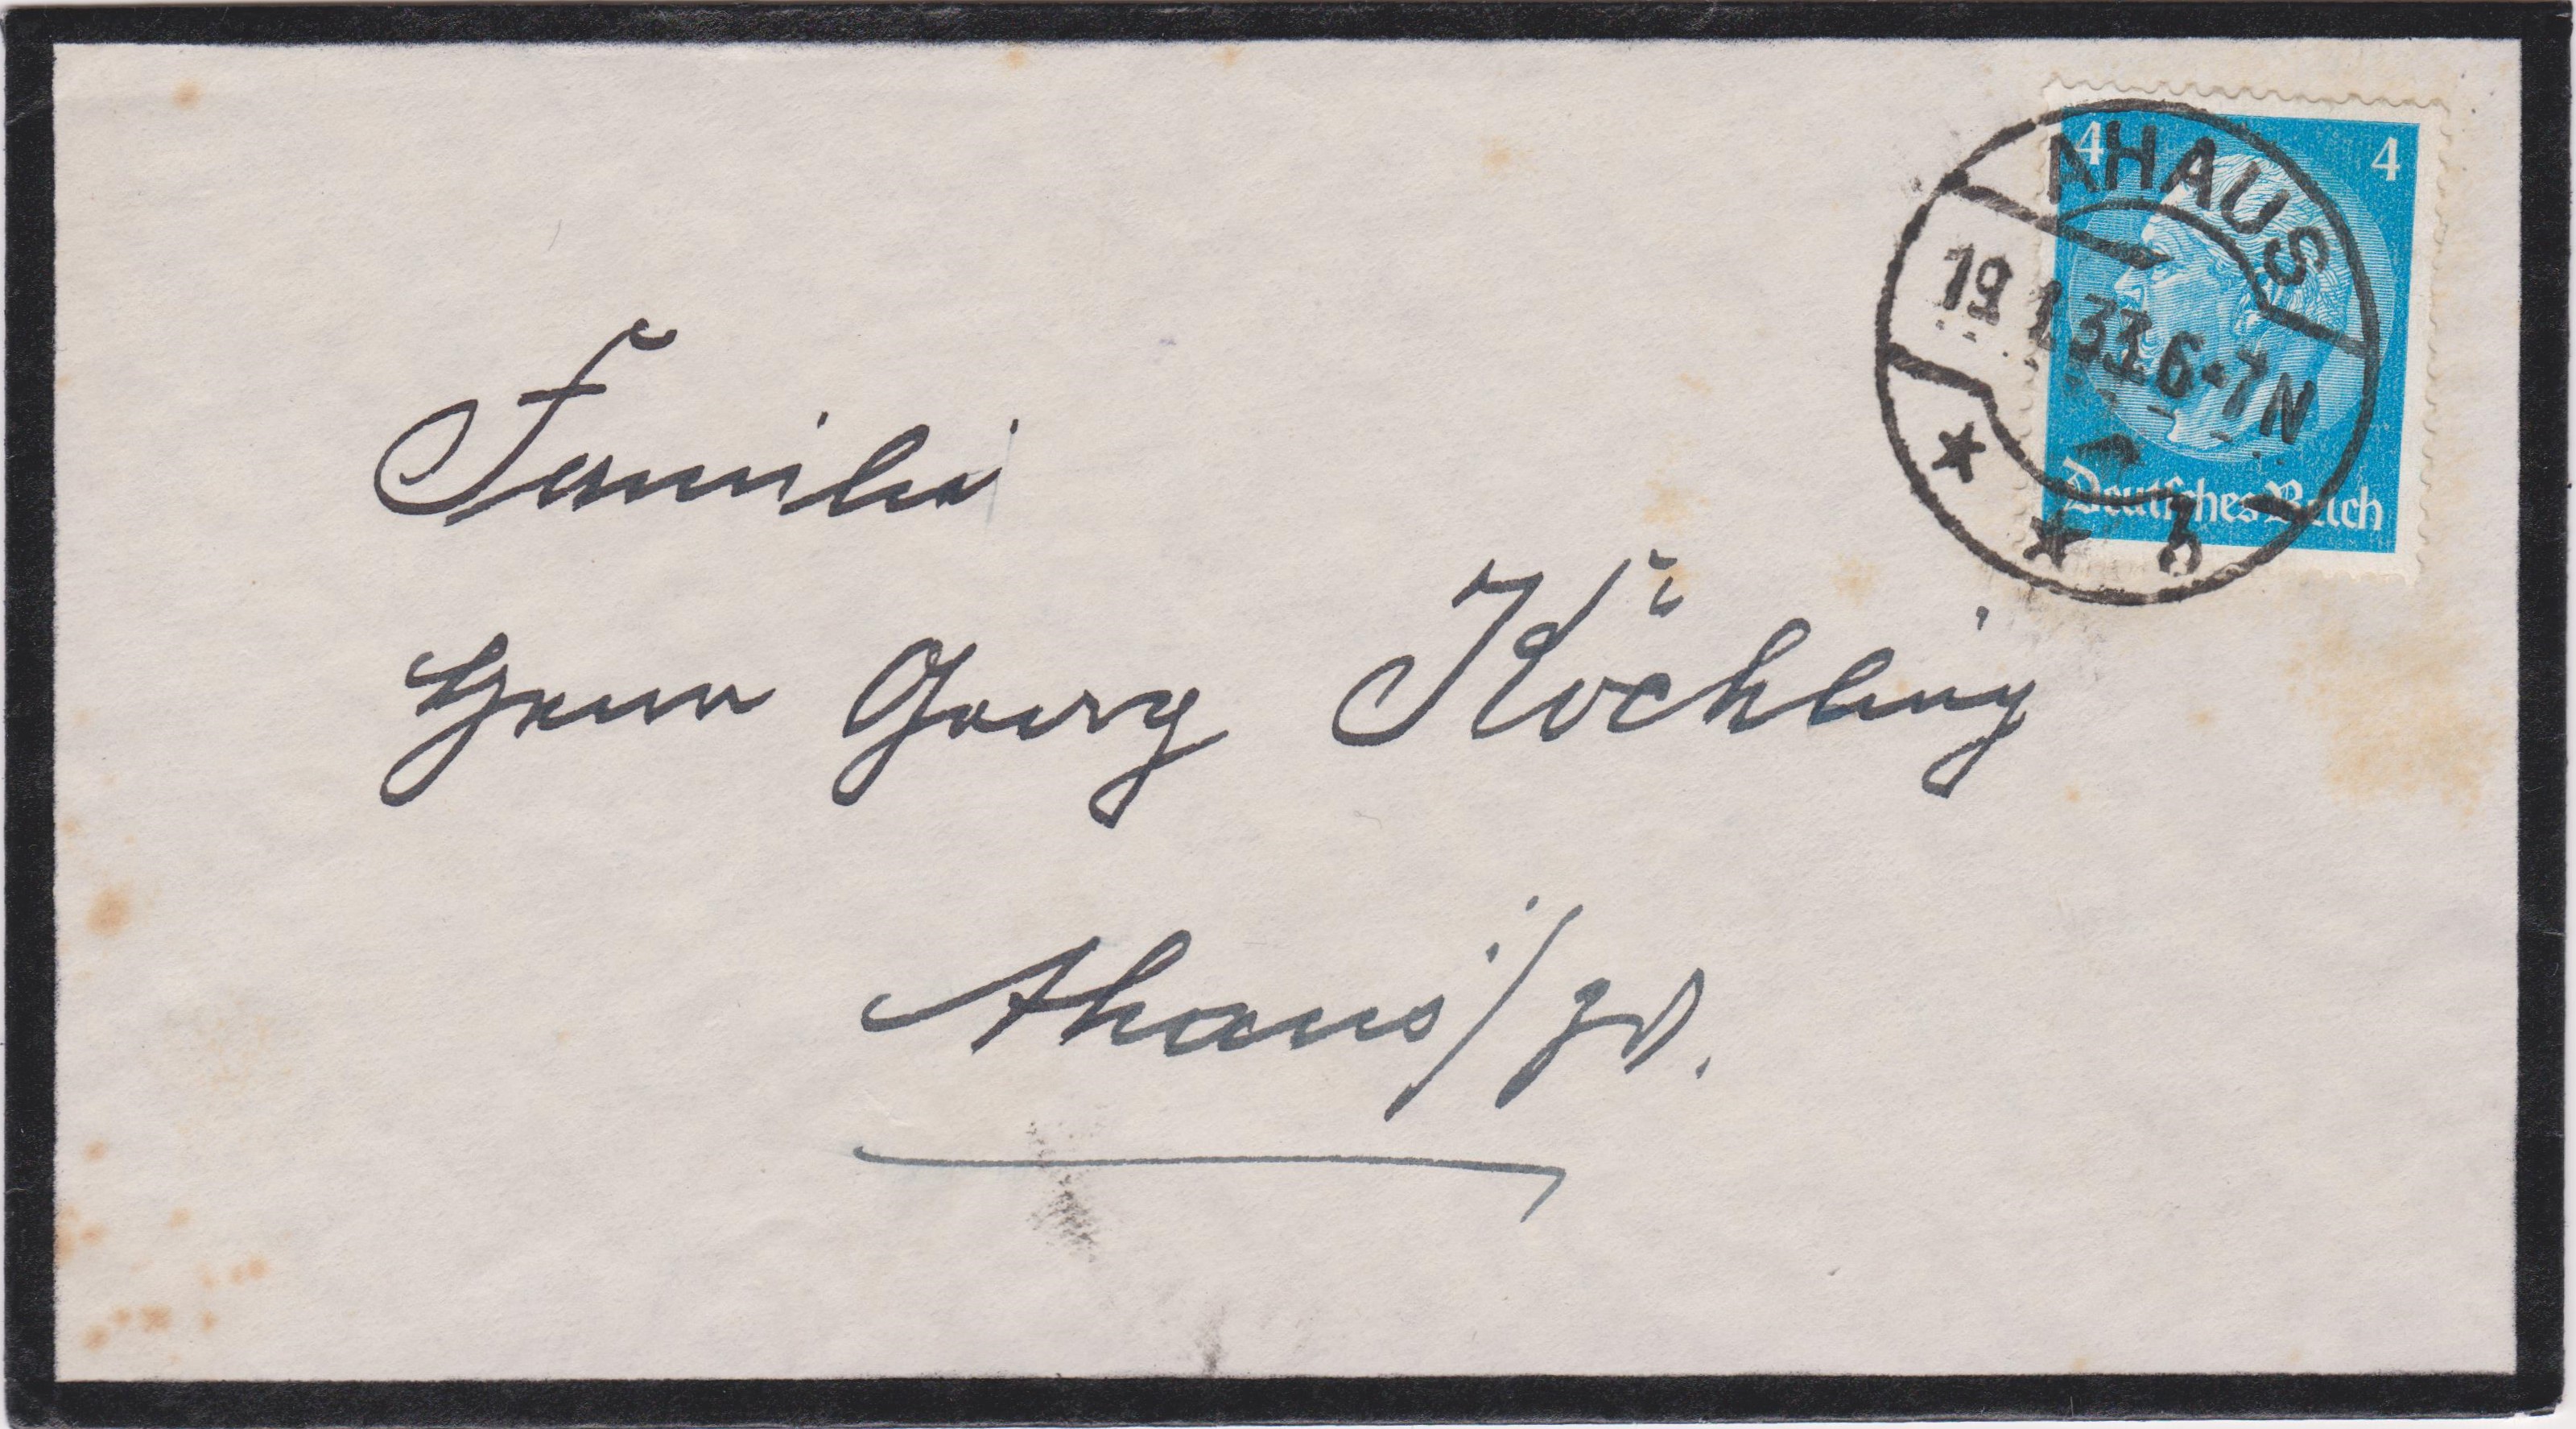 4 4
AHAUS
19.1.33.6-7N
* * b
Deutsches Reich
Familie
Herrn Georg Köchling
Ahaus i/W.